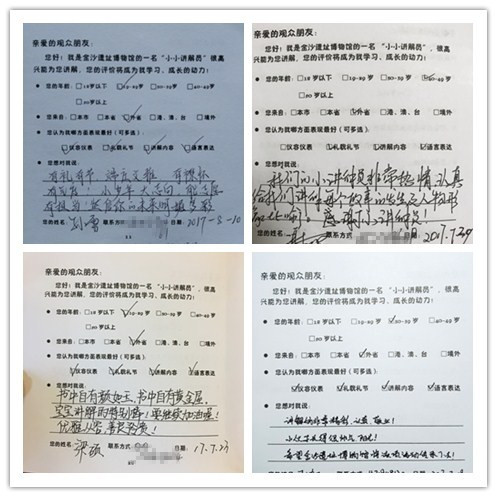 亲爱的观众朋友：
您好！我是金沙遗址博物馆的一名“小小讲解员”，很高
兴能为您讲解，您的评价将成为我学习、成长的动力！
您的年龄：□18岁以下 □19-29岁 □30-39岁 □40-49岁
□50岁以上
您来自：□本市 □本省 □外省 □港、澳、台 □境外
您认为我哪方面表现最好（可多选）
□仪容仪表 □礼貌礼节 □讲解内容 □语言表达
您想对我说：
您的姓名： 联系方式 日期：2017-8-10
亲爱的观众朋友：
您好！我是金沙遗址博物馆的一名“小小讲解员”，很高
兴能为您讲解，您的评价将成为我学习、成长的动力！
您的年龄：□18岁以下 □19-29岁 □30-39岁 □40-49岁
□50岁以上
您来自：□本市 □本省 □外省 □港、澳、台 □境外
您认为我哪方面表现最好（可多选）
□仪容仪表 □礼貌礼节 □讲解内容 □语言表达
您想对我说：
我们的小讲解员非常热情认真
给我们讲解每个故事的发生及人物形
感谢小讲解员！
您的姓名： 联系方式 日期：2017.7.29
亲爱的观众朋友：
您好！我是金沙遗址博物馆的一名“小小讲解员”，很高
兴能为您讲解，您的评价将成为我学习、成长的动力！
您的年龄：□18岁以下 □19-29岁 □30-39岁 □40-49岁
□50岁以上
您来自：□本市 □本省 □外省 □港、澳、台 □境外
您认为我哪方面表现最好（可多选）
□仪容仪表 □礼貌礼节 □讲解内容 □语言表达
您想对我说：
书中自有颜如玉，书中自有黄金屋，
宝宝讲解的特别棒！要继续加油喔！
您的姓名： 联系方式 日期：17.7.23
亲爱的观众朋友：
您好！我是金沙遗址博物馆的一名“小小讲解员”，很高
兴能为您讲解，您的评价将成为我学习、成长的动力！
您的年龄：□18岁以下 □19-29岁 □30-39岁 □40-49岁
□50岁以上
您来自：□本市 □本省 □外省 □港、澳、台 □境外
您认为我哪方面表现最好（可多选）
□仪容仪表 □礼貌礼节 □讲解内容 □语言表达
您想对我说：
讲解的非常精彩，认真、敬业！
希望金沙遗址博物馆